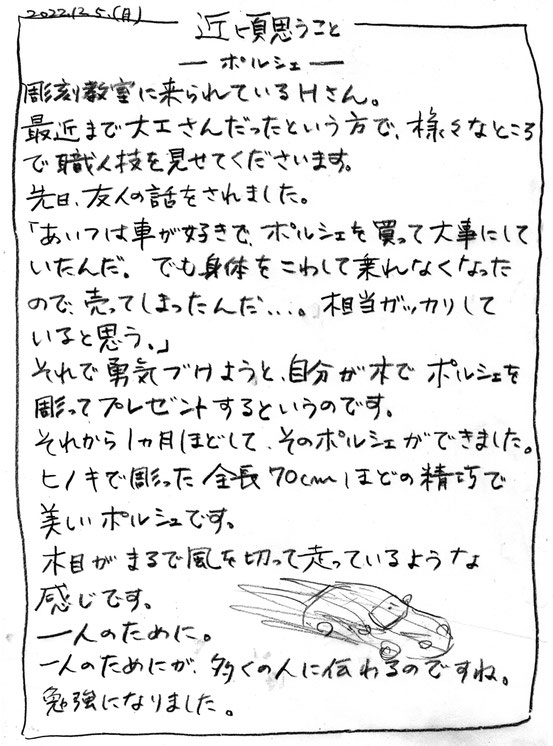 2022.12.5.(月)
近頃思うこと
ー ポルシェ ー
彫刻教室に来られているHさん。
最近まで大工さんだったという方で、様々なところ
で職人技を見せてくださいます。
先日、友人の話をされました。
「あいつは車が好きで、ポルシェを買って大事にして
いたんだ。でも身体をこわして乗れなくなった
ので、売ってしまったんだ...。相当ガッカリして
いると思う。」
それで勇気づけようと、自分が木でポルシェを
彫ってプレゼントするというのです。
それから1ヵ月ほどして、そのポルシェができました。
ヒノキで彫った全長70cmほどの精巧で
美しいポルシェです。
木目がまるで風を切って走っているような
感じです。
一人のために。
一人のためにが、多くの人に伝わるのですね。
勉強になりました。